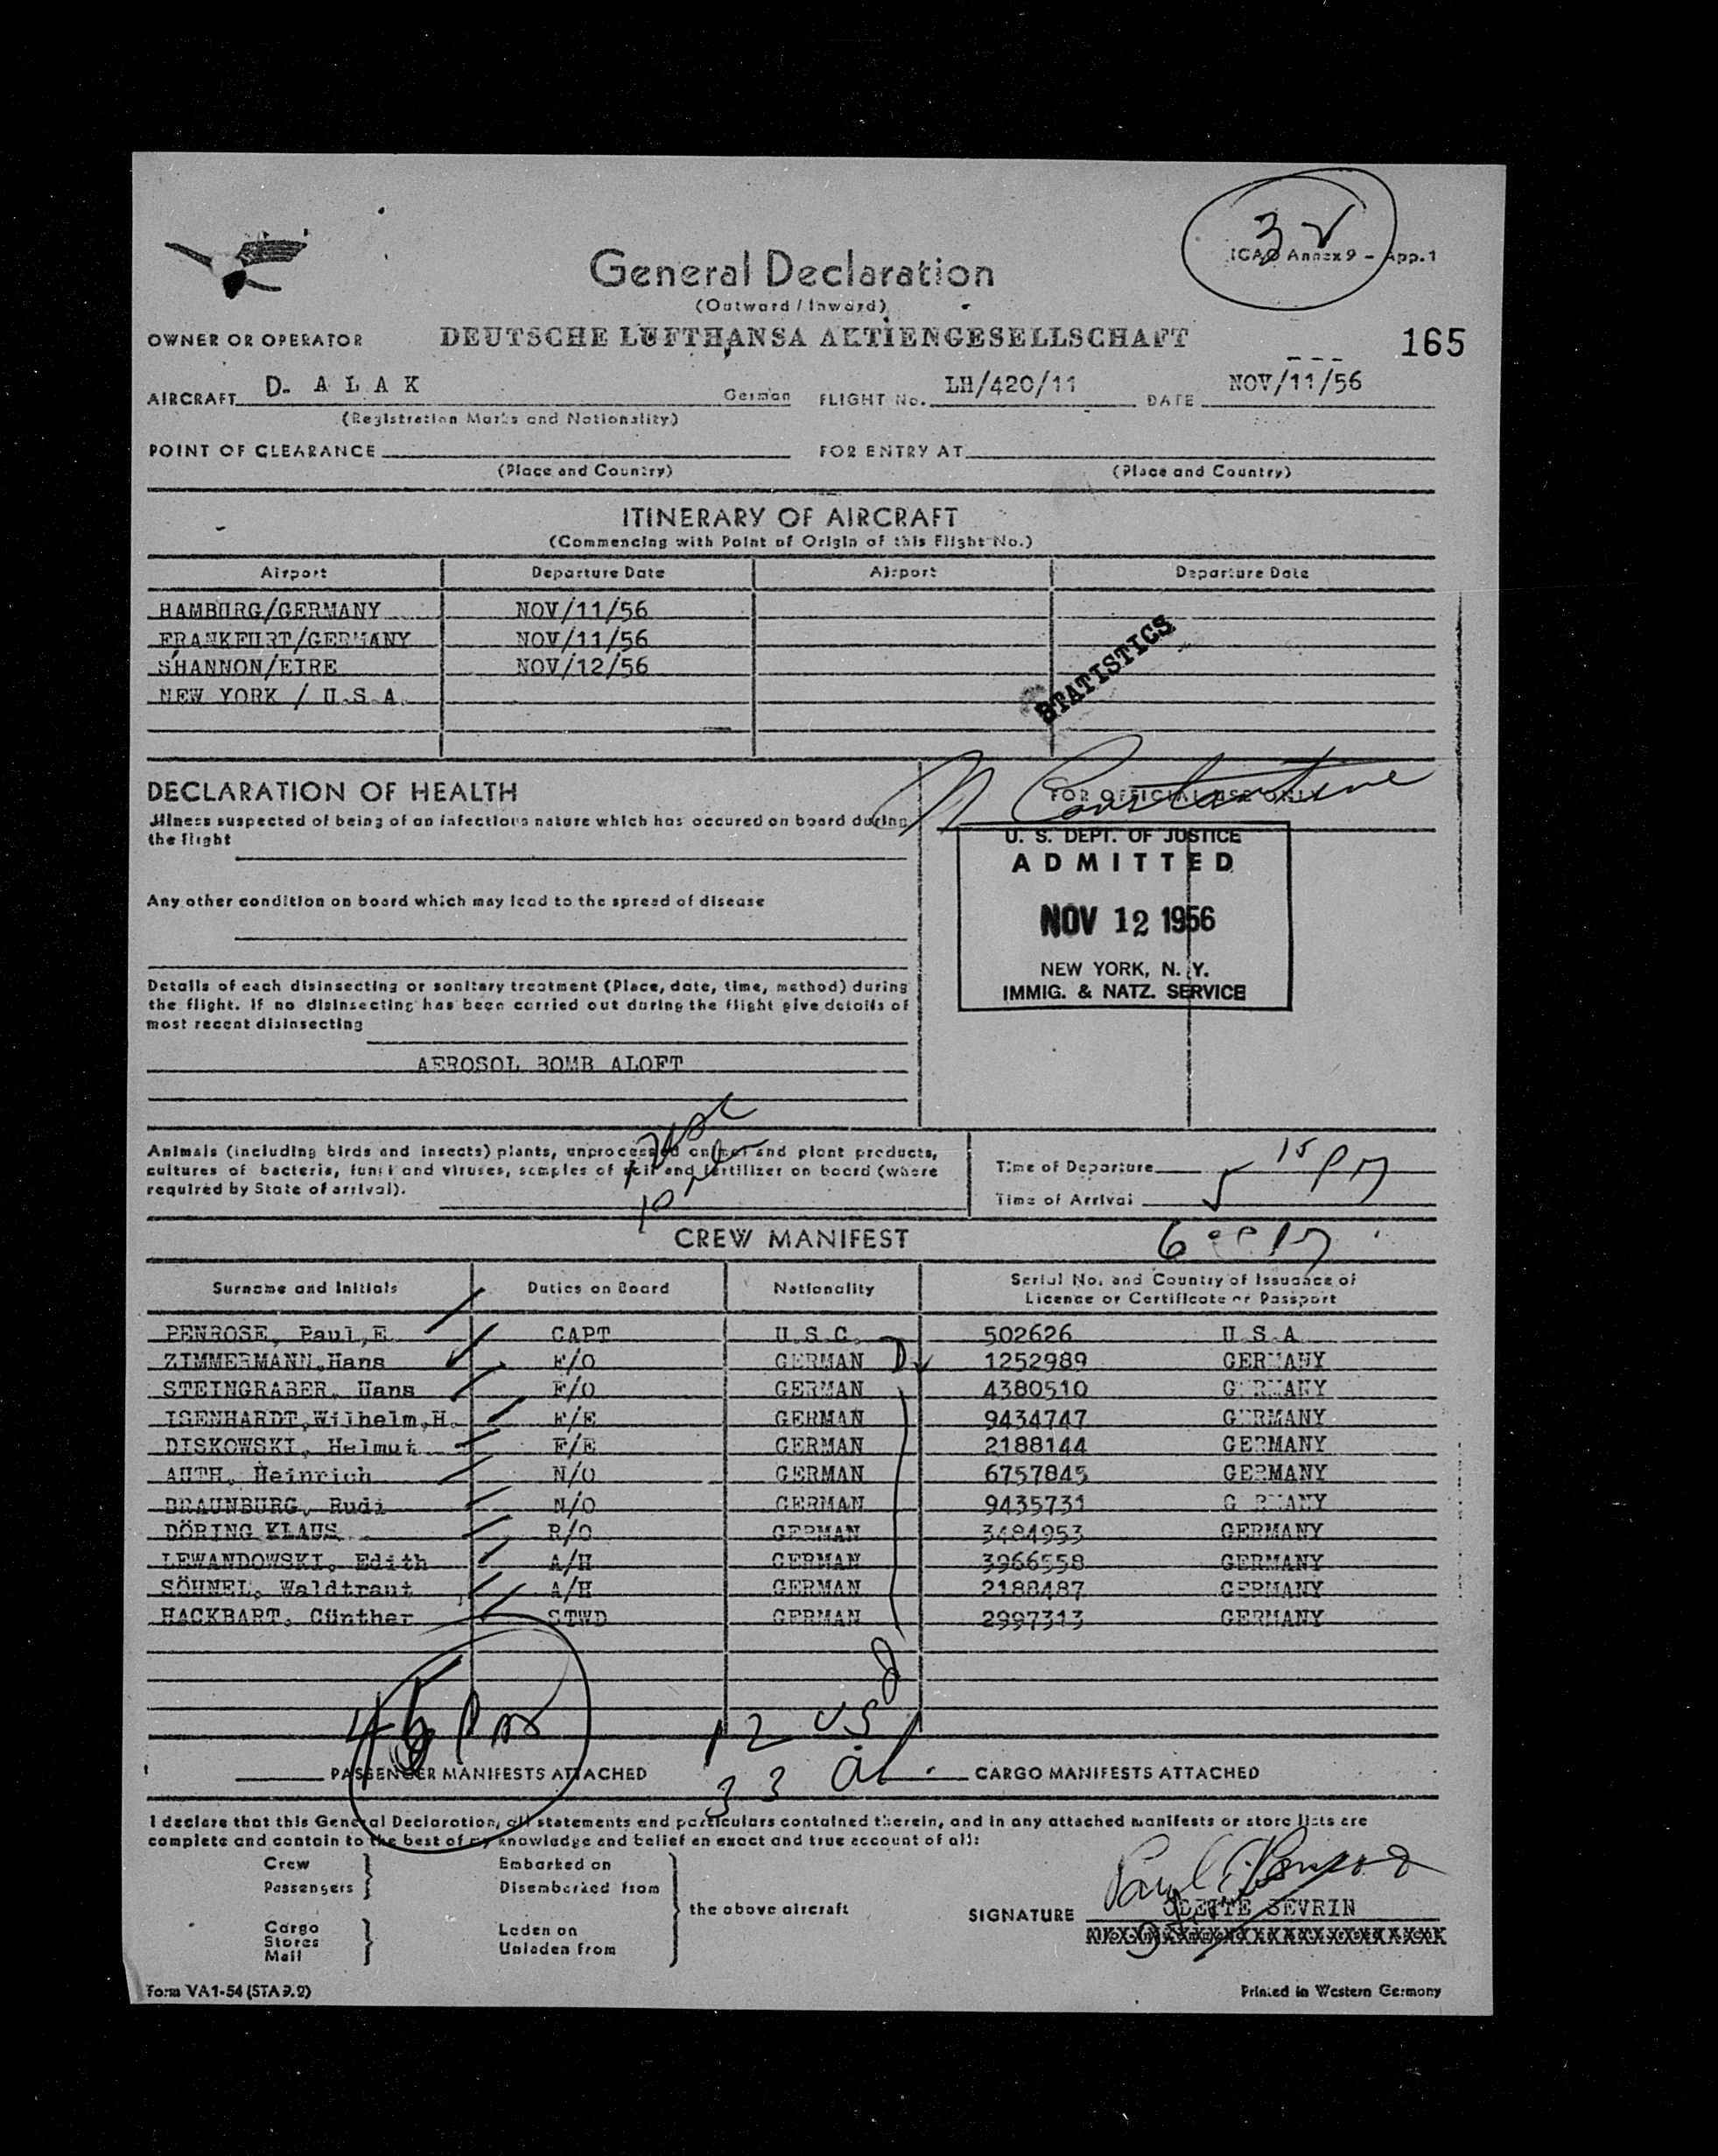 3
ICAO Annex 9 - App. 1
General Declaration
(Outward / Inward)
OWNER OR OPERATOR DEUTSCHE LUFTHANSA AKTIENGESELLSCHAFT
165
AIRCRAFT D- A L A K German FLIGHT No. LH/420/11 DATE NOV/11/56
(Registration Marks and Nationality)
POINT OF CLEARANCE FOR ENTRY AT
(Place and Country) (Place and Country)
ITINERARY OF AIRCRAFT
(Commencing with Point of Origin of this Flight No.)
Airport Departure Date Airport Departure Date
HAMBURG/GERMANY NOV/11/56
FRANKFURT/GERMANY NOV/11/56
SHANNON/EIRE NOV/12/56
NEW YORK / U.S.A.
STATISTICS
N Constantine
DECLARATION OF HEALTH
FOR OFFICIAL USE ONLY
Illness suspected of being of an infectious nature which has occured on board during
the flight
U. S. DEPT. OF JUSTICE
ADMITTED
NOV 12 1956
NEW YORK, N. Y.
IMMIG. & NATZ. SERVICE
Any other condition on board which may lead to the spread of disease
Details of each disinsecting or sanitary treatment (Place, date, time, method) during
the flight. If no disinsecting has been carried out during the flight give details of
most recent disinsecting
AEROSOL BOMB ALOFT
Animals (including birds and insects) plants, unprocessed animal and plant products,
cultures of bacteria, fungi and viruses, samples of soil and fertilizer on board (where
required by State of arrival).
Time of Departure 5 15 PM
Time of Arrival
6 00 PM
CREW MANIFEST
Surname and Initials Duties on Board Nationality Serial No. and Country of Issuance of
Licence or Certificate or Passport
PENROSE, Paul,E CAPT U.S.C. 502626 U.S.A.
ZIMMERMANN,Hans F/O GERMAN 1252989 GERMANY
STEINGRABER, Hans F/O GERMAN 4380510 GERMANY
ISENHARDT,Wilhelm,H. F/E GERMAN 9434747 GERMANY
DISKOWSKI, Helmut F/E GERMAN 2188144 GERMANY
AUTH, Heinrich N/O GERMAN 6757845 GERMANY
BRAUNBURG, Rudi N/O GERMAN 9435731 GERMANY
DÖRING KLAUS R/O GERMAN 3484953 GERMANY
LEWANDOWSKI, Edith A/H GERMAN 3966558 GERMANY
SÖHNEL, Waldtraut A/H GERMAN 2188487 GERMANY
HACKBART, Günther STWD GERMAN 2997313 GERMANY
45 Pax
12 US
33 al.
PASSENGER MANIFESTS ATTACHED CARGO MANIFESTS ATTACHED
I declare that this General Declaration, all statements and particulars contained therein, and in any attached manifests or store lists are
complete and contain to the best of my knowledge and belief an exact and true account of all:
Crew
Passengers
Embarked on
Disembarked from
Cargo
Stores
Mail
Laden on
Unladen from
the above aircraft
Paul E. Penrose
SIGNATURE ODETTE SEVRIN
Form VA1-54 (STA 9.2) Printed in Western Germany